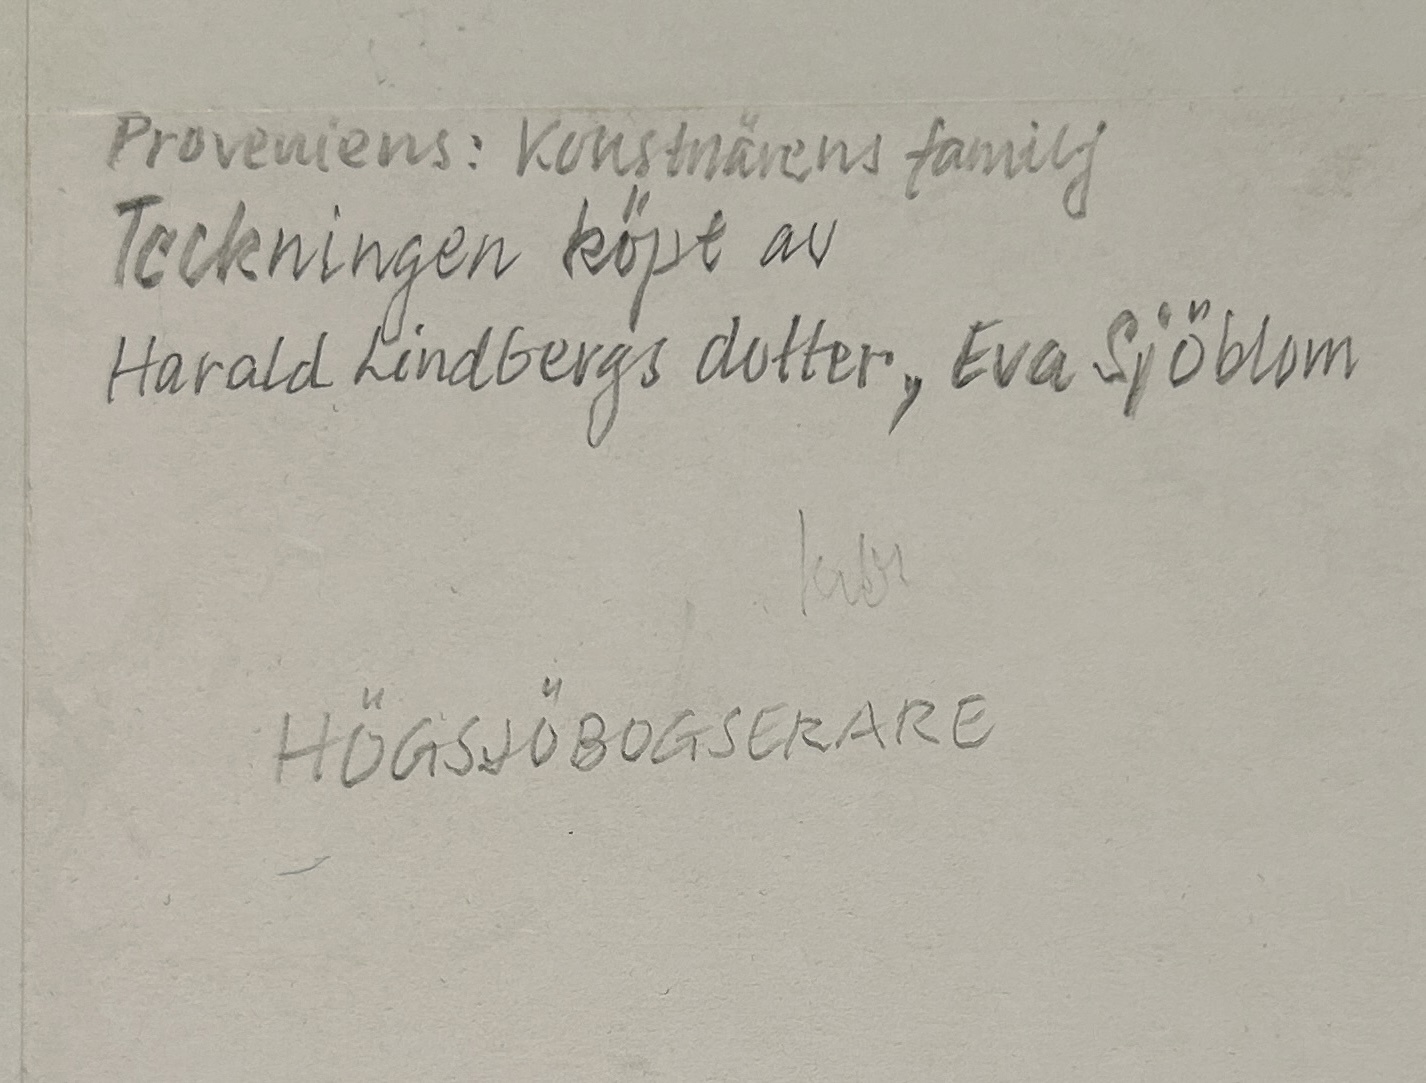 Proveniens: Konstnärens familj
Teckningen köpt av
Harald Lindbergs dotter, Eva Sjöblom
HÖGSJÖBOGSERARE